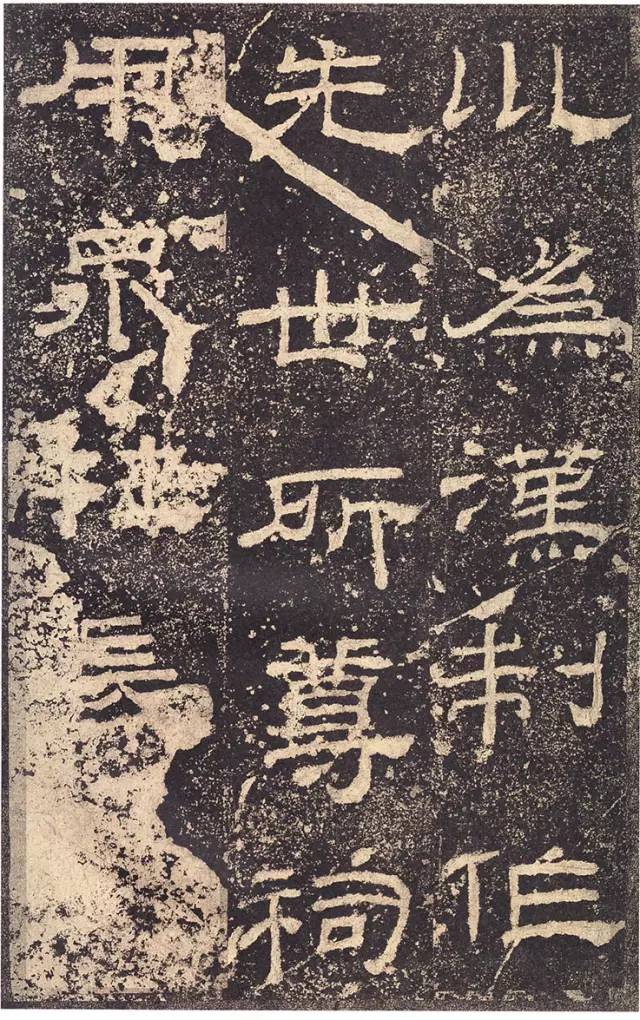 巛為漢制作
先世所尊祠
用眾牲長